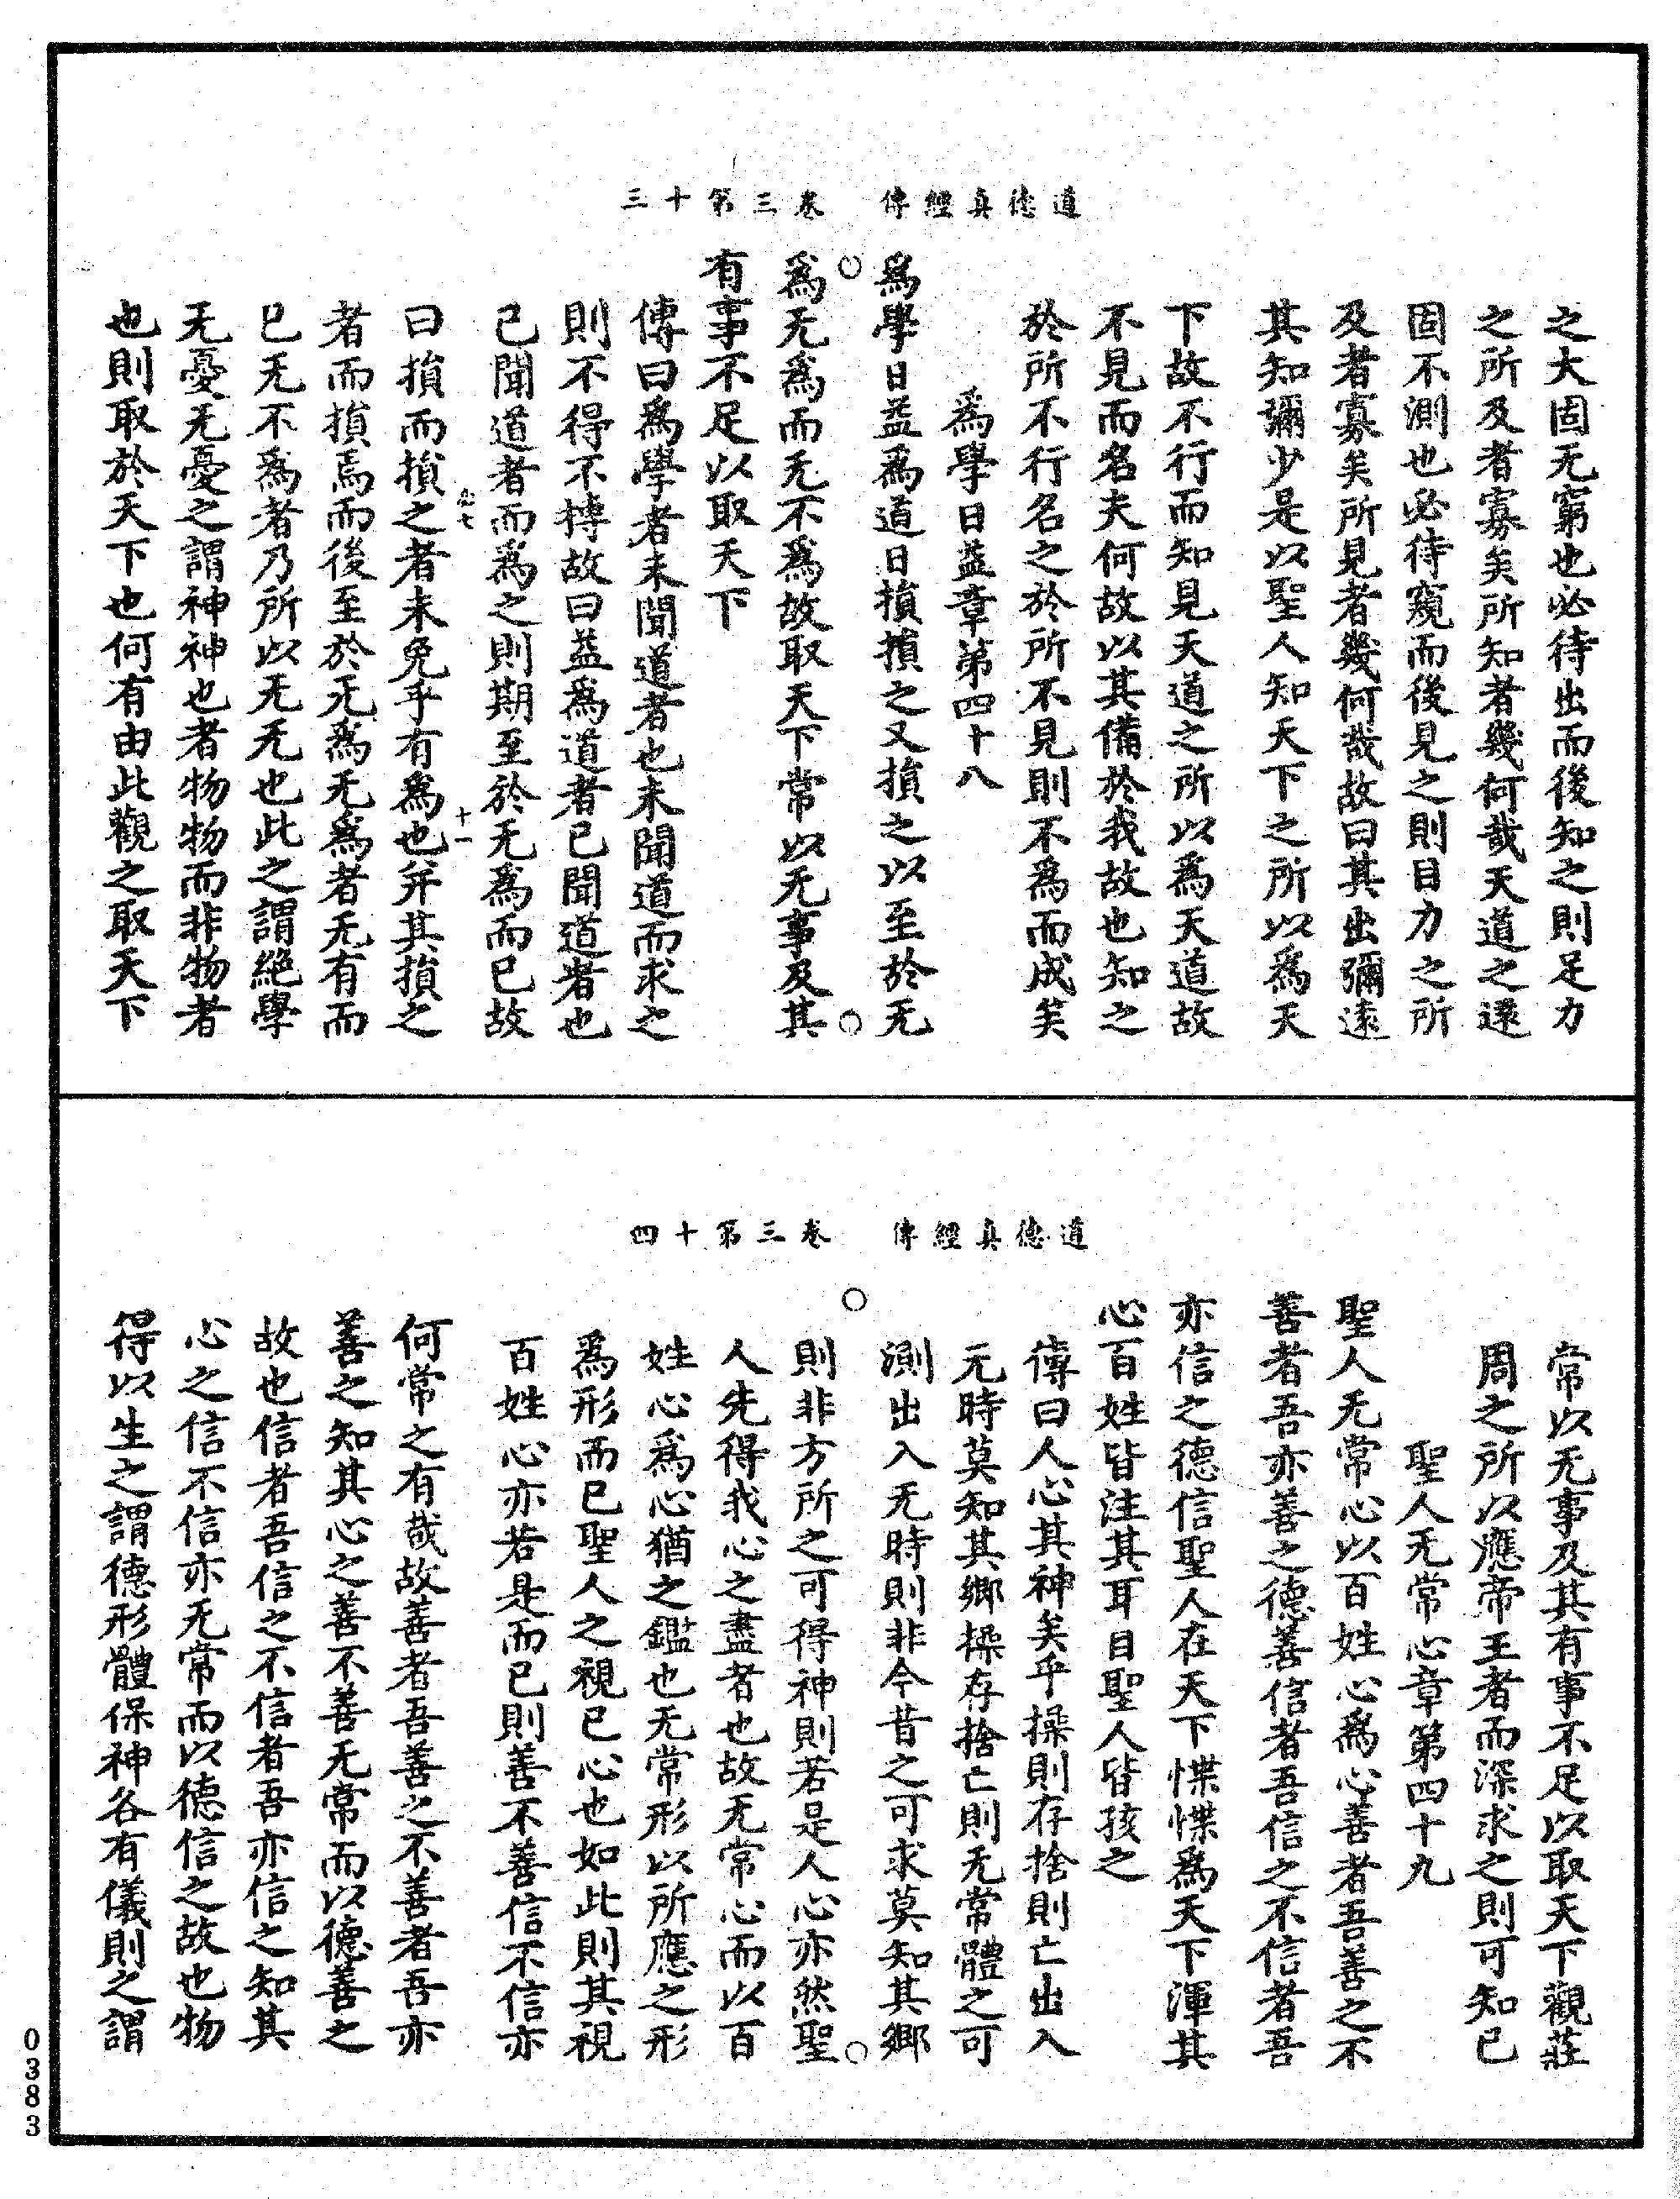 道德真經傳　卷三第十三
之大固无窮也必待出而後知之則足力
之所及者寡矣所知者幾何哉天道之遠
固不測也必待窺而後見之則目力之所
及者寡矣所見者幾何哉故曰其出彌遠
其知彌少是以聖人知天下之所以為天
下故不行而知見天道之所以為天道故
不見而名夫何故以其備於我故也知之
於所不行名之於所不見則不為而成矣
為學日益章第四十八
為學日益為道日損損之又損之以至於无
為无為而无不為故取天下常以无事及其
有事不足以取天下
傳曰為學者未聞道者也未聞道而求之
則不得不摶故曰益為道者已聞道者也
已聞道者而為之則期至於无為而已故
曰損而損之者未免乎有為也并其損之
者而損焉而後至於无為无為者无有而
已无不為者乃所以无无也此之謂絕學
无憂无憂之謂神神也者物物而非物者
也則取於天下也何有由此觀之取天下
必七
十一
道德真經傳　卷三第十四
常以无事及其有事不足以取天下觀莊
周之所以應帝王者而深求之則可知已
聖人无常心章第四十九
聖人无常心以百姓心為心善者吾善之不
善者吾亦善之德善信者吾信之不信者吾
亦信之德信聖人在天下惵惵為天下渾其
心百姓皆注其耳目聖人皆孩之
傳曰人心其神矣乎操則存捨則亡出入
无時莫知其鄉操存捨亡則无常體之可
測出入无時則非今昔之可求莫知其鄉
則非方所之可得神則若是人心亦然聖
人先得我心之盡者也故无常心而以百
姓心為心猶之鑑也无常形以所應之形
為形而已聖人之視已心也如此則其視
百姓心亦若是而已則善不善信不信亦
何常之有哉故善者吾善之不善者吾亦
善之知其心之善不善无常而以德善之
故也信者吾信之不信者吾亦信之知其
心之信不信亦无常而以德信之故也物
得以生之謂德形體保神各有儀則之謂
0383